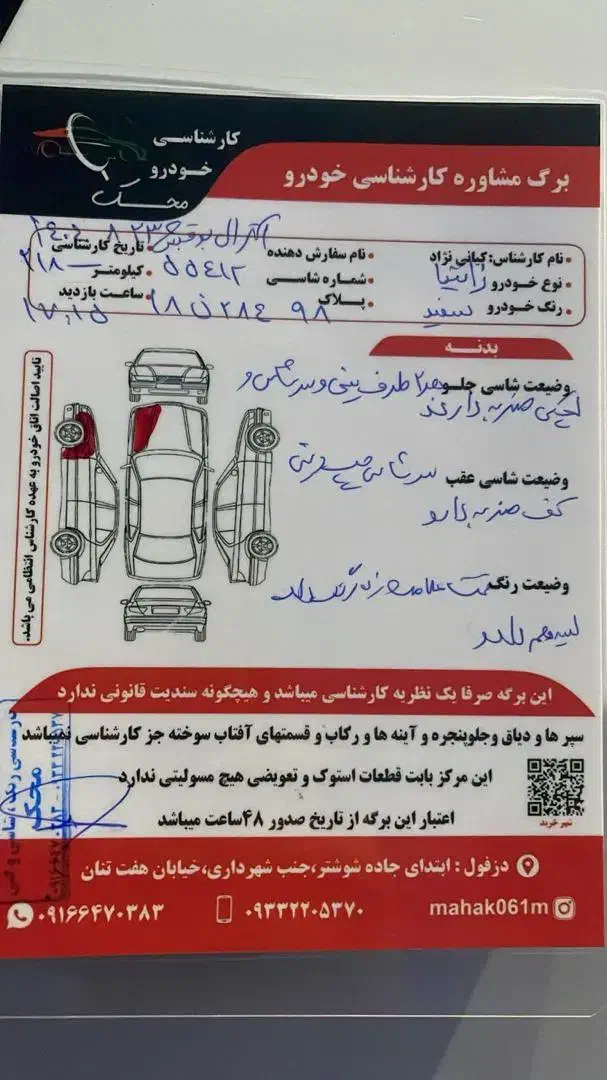 کارشناسی
خودرو
محک
برگ مشاوره کارشناسی خودرو
نام کارشناس: کیانی نژاد
نام سفارش دهنده
تاریخ کارشناسی
نوع خودرو زانتیا
شماره شاسی ۵۵۴۱۲
کیلومتر ۲۱۸
رنگ خودرو سفید
پلاک
ساعت بازدید ۱۷:۱۵
بدنه
وضعیت شاسی جلو هر۲ طرف سینی و سر شاسی و
ضربه دارند
وضعیت شاسی عقب
کف ضربه دارد
وضعیت رنگ
تایید اصالت اتاق خودرو به عهده کارشناس انتظامی می باشد.
این برگه صرفا یک نظریه کارشناسی میباشد و هیچگونه سندیت قانونی ندارد
سپر ها و دیاق وجلوپنجره و آینه ها و رکاب و قسمتهای آفتاب سوخته جز کارشناسی نمیباشد
این مرکز بابت قطعات استوک و تعویضی هیچ مسولیتی ندارد
اعتبار این برگه از تاریخ صدور ۴۸ساعت میباشد
شهر خرید
محک
دزفول : ابتدای جاده شوشتر،جنب شهرداری،خیابان هفت تنان
mahak061m
۰۹۳۳۲۲۰۵۳۷۰
۰۹۱۶۶۴۷۰۳۸۳